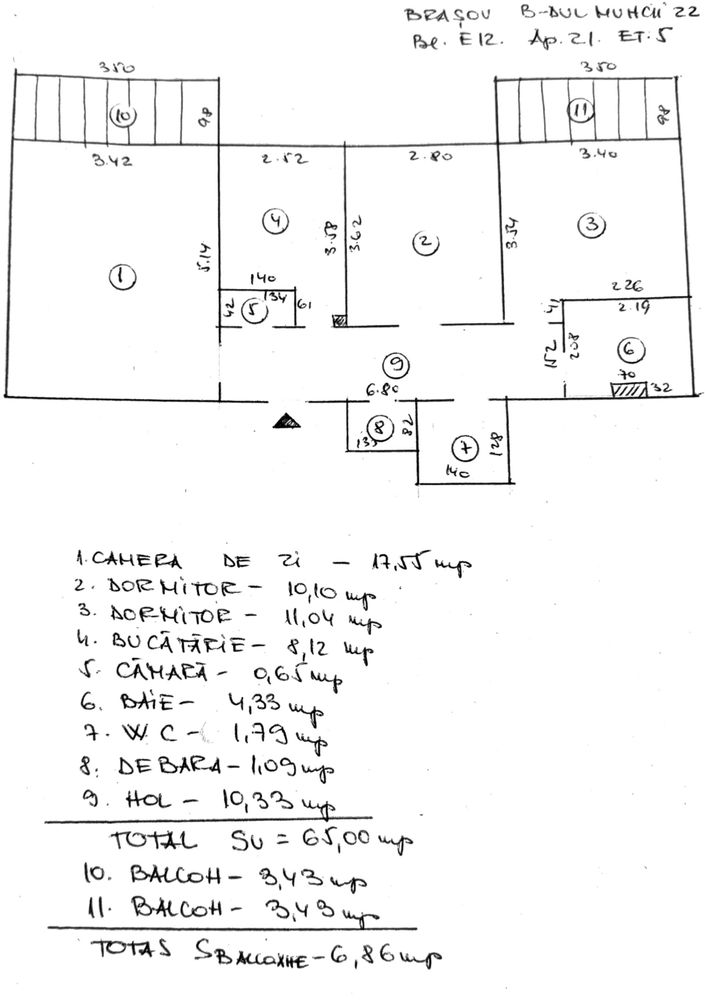 BRAȘOV B-DUL MUNCII 22
BL. E12. AP. 21. ET. 5
350
350
10
98
11
98
3.42
2.52
2.80
3.40
5.14
4
3.58
3.62
2
3.54
3
1
140
134
42
5
61
226
2.19
41
152
208
6
70
32
9
6.80
8
82
133
7
128
140
1. CAMERA DE ZI – 17,55 mp
2. DORMITOR – 10,10 mp
3. DORMITOR – 11,04 mp
4. BUCĂTĂRIE – 8,12 mp
5. CĂMARĂ – 0,65 mp
6. BAIE – 4,33 mp
7. WC – 1,79 mp
8. DEBARA – 1,09 mp
9. HOL – 10,33 mp
TOTAL SU = 65,00 mp
10. BALCON – 3,43 mp
11. BALCON – 3,43 mp
TOTAL S BALCOANE – 6,86 mp